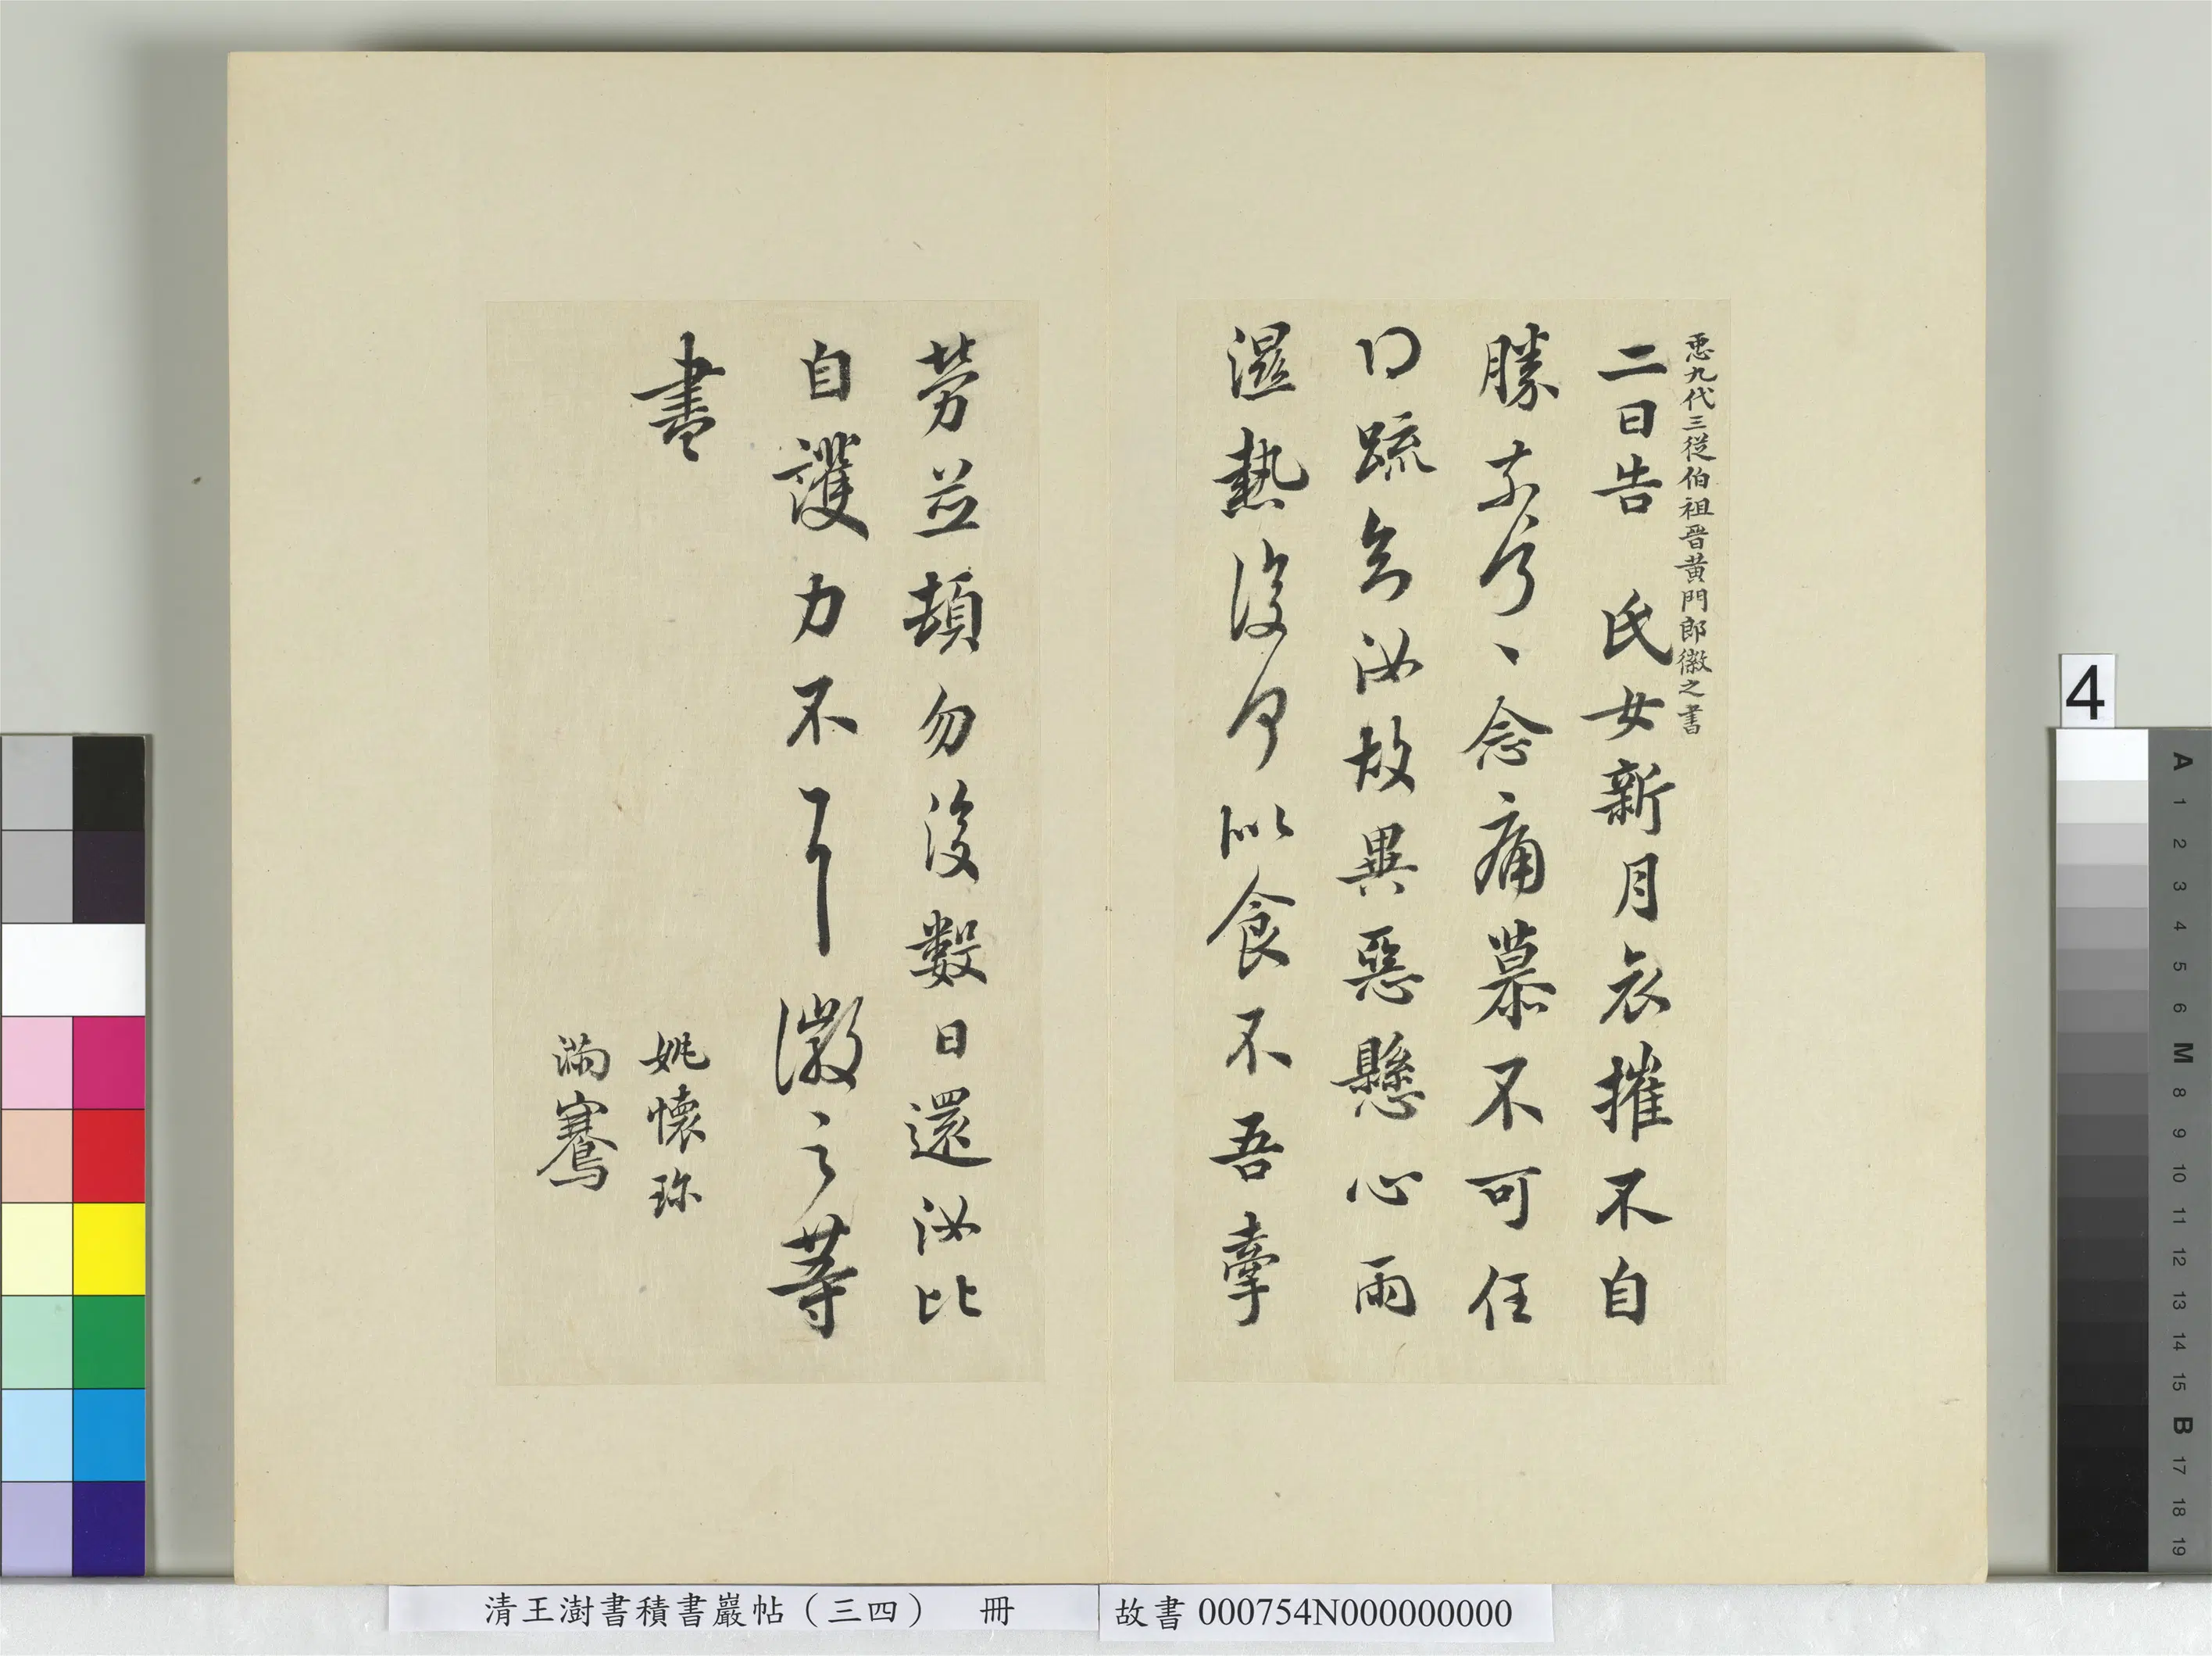 𢘑九代三從伯祖晉黃門郎徽之書
二日告　氏女新月哀摧不自
勝奈何、念痛慕不可任
得疏知汝故異惡懸心雨
濕熱復何似食不吾牽
勞並頓勿復數日還汝比
自護力不具徽之等
書
姚懷珎
滿騫
清王澍書積書巖帖（三四）　冊
故書 000754N000000000
4
A
1
2
3
4
5
6
M
8
9
10
11
12
13
14
15
B
17
18
19